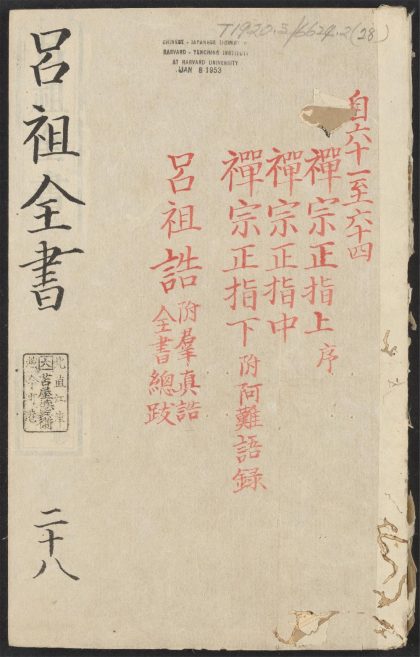 T1920.5/6624.2(28)
CHINESE - JAPANESE LIBRARY
HARVARD - YENCHING INSTITUTE
AT HARVARD UNIVERSITY
JAN 8 1953
自六十一至六十四
禪宗正指上 序
禪宗正指中
禪宗正指下 附阿難語録
呂祖誥 附羣真誥
全書總跋
呂祖全書
二十八